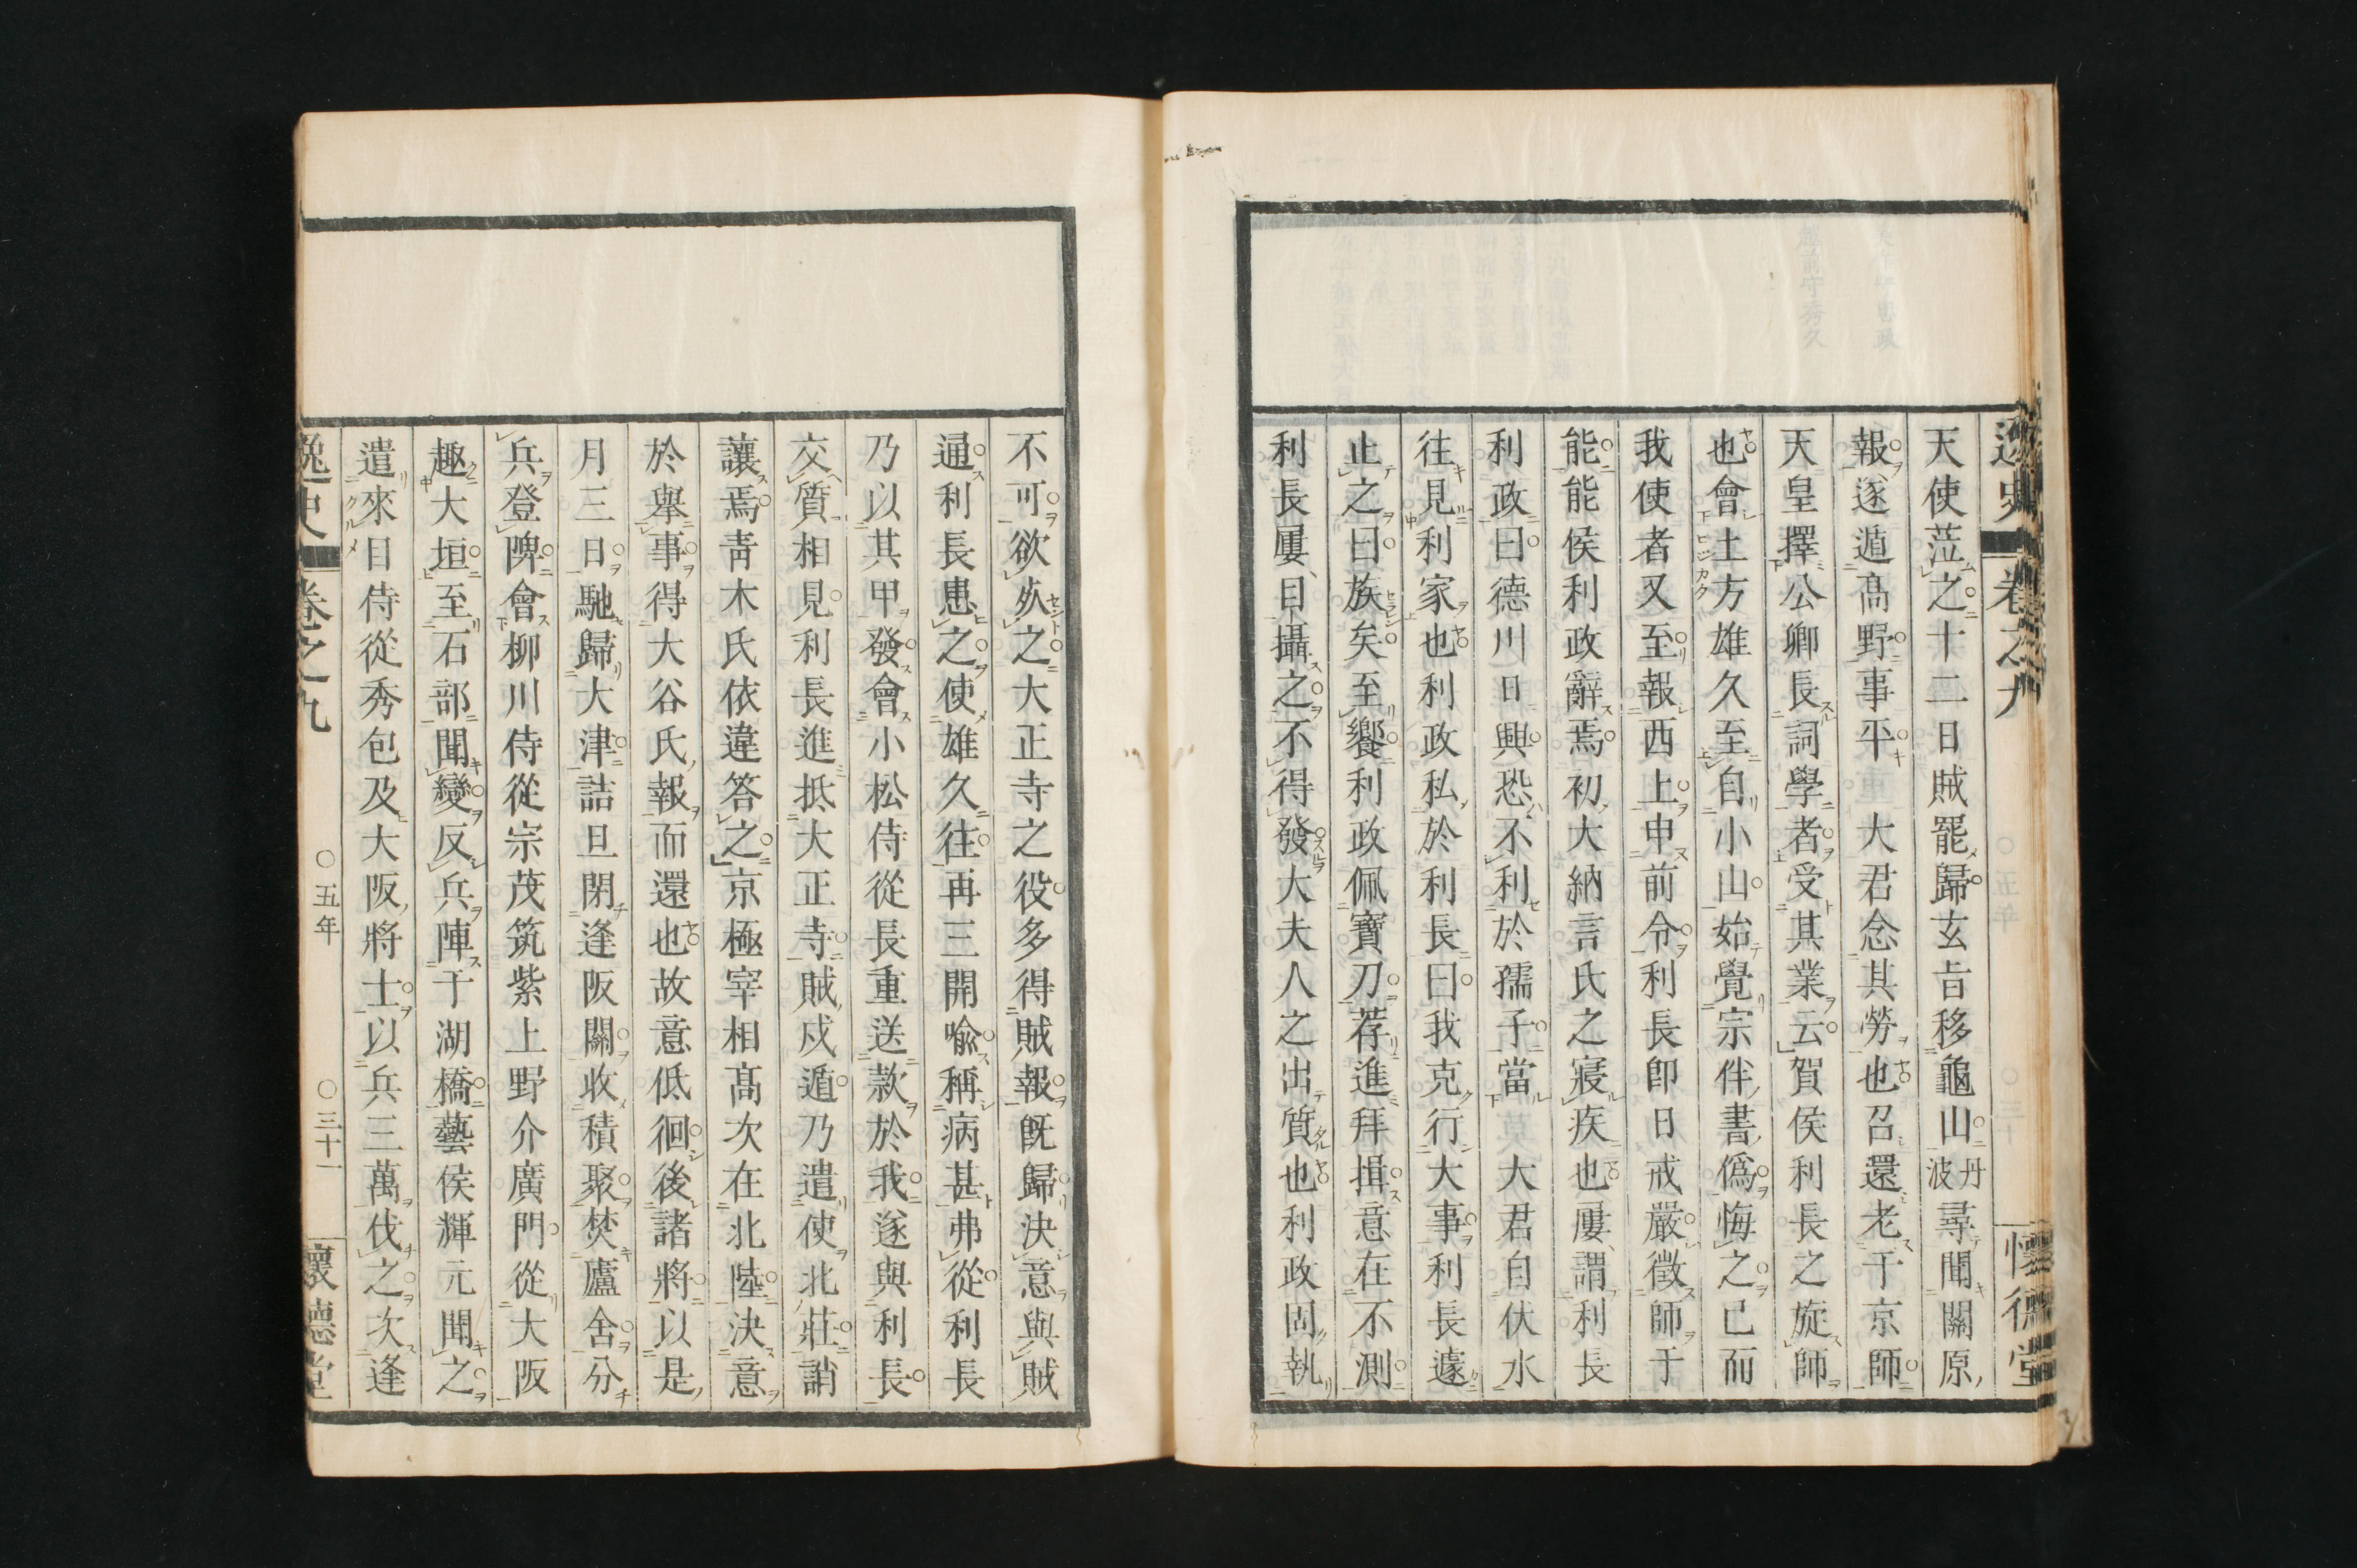 逸史 卷之九 懷德堂
天使蒞之十二日賊罷歸玄旨移龜山丹波尋聞關原
報遂遁髙野事平大君念其勞也召還老于京師
天皇擇公卿長詞學者受其業云賀侯利長之旋師
也會土方雄久至自小山始覺宗伴書僞悔之已而
我使者又至報西上申前令利長卽日戒嚴徵師于
能能侯利政辭焉初大納言氏之寢疾也屢謂利長
利政曰德川日興恐不利於孺子當大君自伏水
往見利家也利政私於利長曰我克行大事利長遽
止之曰族矣至饗利政佩寶刀荐進拜揖意在不測
利長屢目攝之不得發大夫人之出質也利政固執
不可欲䊹之大正寺之役多得賊報旣歸決意與賊
通利長患之使雄久往再三開喩稱病甚弗從利長
乃以其甲發會小松侍從長重送款於我遂與利長
交質相見利長進抵大正寺賊戍遁乃遣使北莊誚
讓焉靑木氏依違答之京極宰相髙次在北陸決意
於擧事得大谷氏報而還也故意低徊後諸將以是
月三日馳歸大津詰旦閉逢阪關收積聚焚廬舍分
兵登陴會柳川侍從宗茂筑紫上野介廣門從大阪
趣大垣至石部聞變反兵陣于湖橋藝侯輝元聞之
遣來日侍從秀包及大阪將士以兵三萬伐之次逢
逸史 卷之九 〇五年 〇三十一 懷德堂